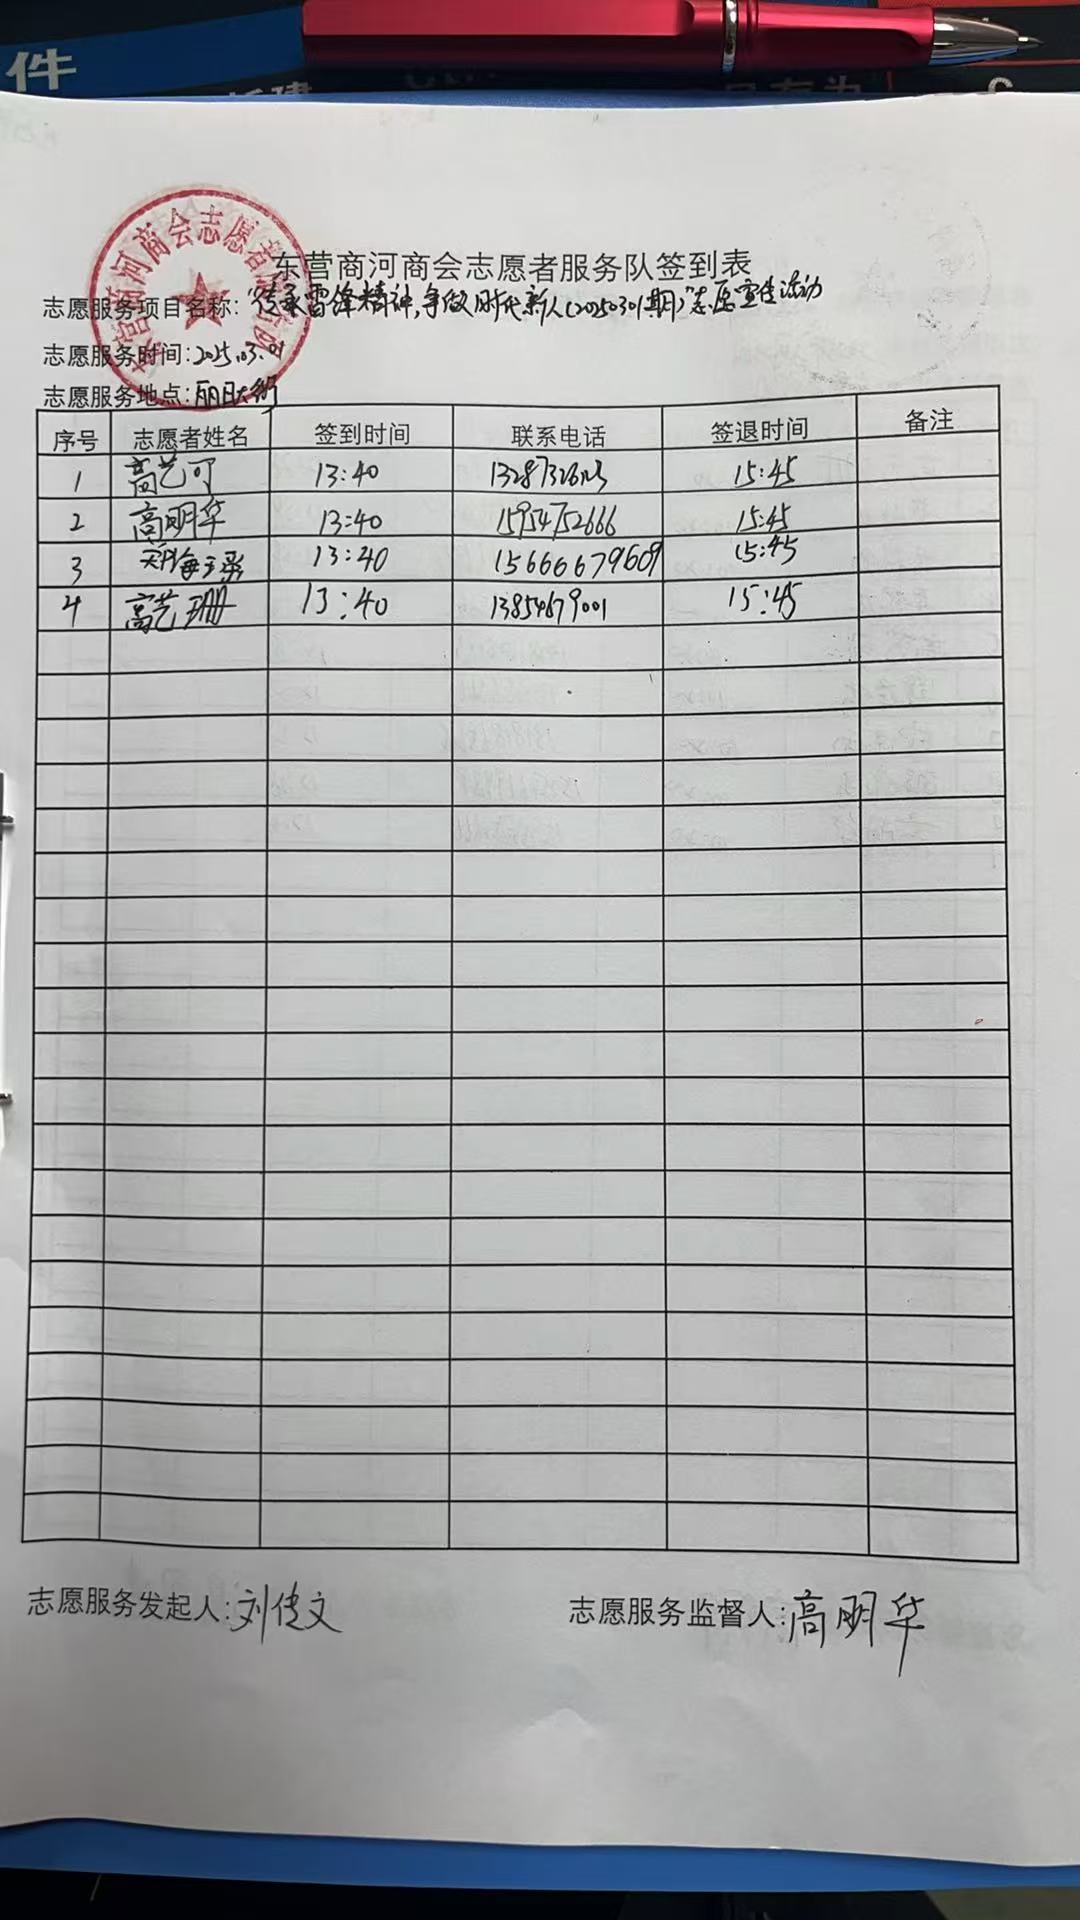 件
东营商河商会志愿者服务队签到表
志愿服务项目名称:"传承雷锋精神,争做时代新人(20250301期)"志愿宣传活动
志愿服务时间:2025.03.01
志愿服务地点:丽日大街
序号 志愿者姓名 签到时间 联系电话 签退时间 备注
1 高艺可 13:40 15:45
2 高明华 13:40 15954752666 15:45
3 13:40 15666679609 15:45
4 高艺珊 13:40 13854679001 15:45
志愿服务发起人:刘传文 志愿服务监督人:高明华